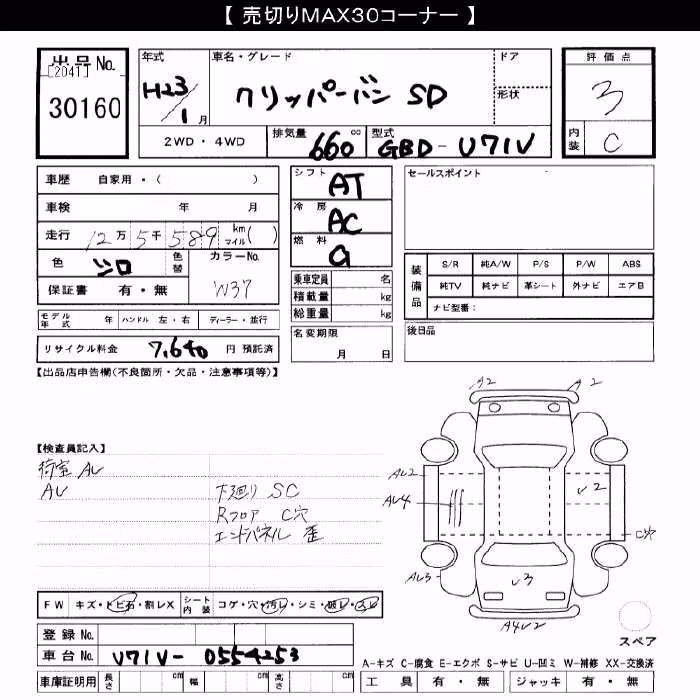 【 売切りMAX30コーナー 】
出品No.
[2041]
30160
年式
H23/1月
車名・グレード
クリッパーバン SD
ドア
形状
評価点
3
内装 C
2WD・4WD
排気量 660 cc
型式 GBD-U71V
車歴 自家用・( )
車検 年 月
走行 12万5千589 km マイル( )
色 シロ 色替
カラーNo. W37
保証書 有・無
モデル年式 年 ハンドル 左・右 ディーラー・並行
リサイクル料金 7,640 円 預託済
シフト AT
冷房 AC
燃料 G
乗車定員 名
積載量 kg
総重量 kg
名変期限 月 日
セールスポイント
装備品
S/R 純A/W P/S P/W ABS
純TV 純ナビ 革シート 外ナビ エアB
ナビ型番:
後日品
【出品店申告欄(不良箇所・欠品・注意事項等)】
【検査員記入】
荷室 AU
AU
下廻り SC
Rフロア C穴
エンドパネル 歪
A2 A2
AU2
AU4
U2
C穴
AU3
U3
A4U2
スペア
FW キズ・トビ石・割レX
シート内装 コゲ・穴・汚レ・シミ・破レ・スレ
登録No.
車台No. U71V-0554253
車庫証明用 長さ cm 幅 cm 高さ cm
A-キズ C-腐食 E-エクボ S-サビ U-凹ミ W-補修 XX-交換済
工具 有・無 ジャッキ 有・無